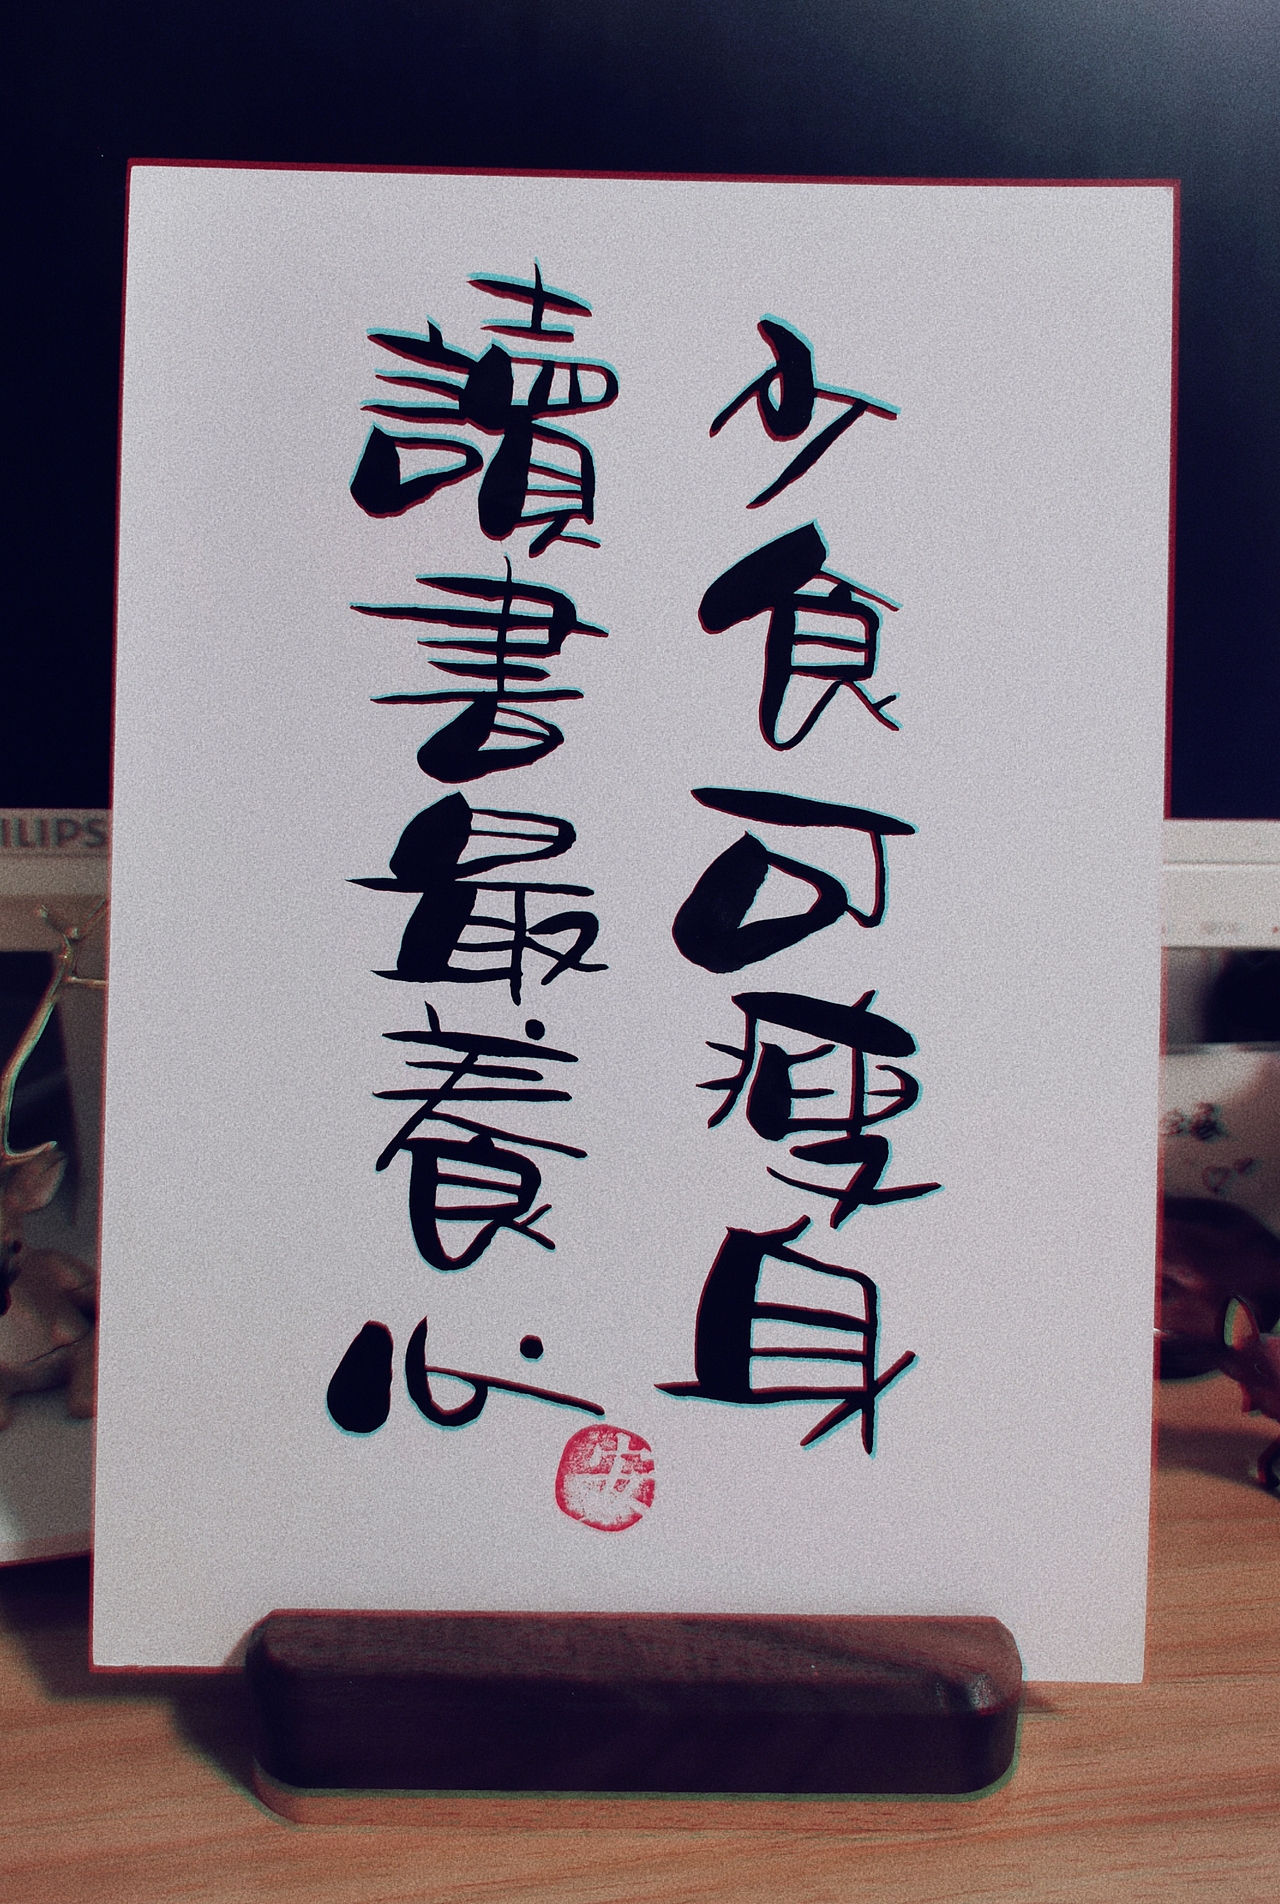 少食可瘦身
讀書最養心
安
ILIPS